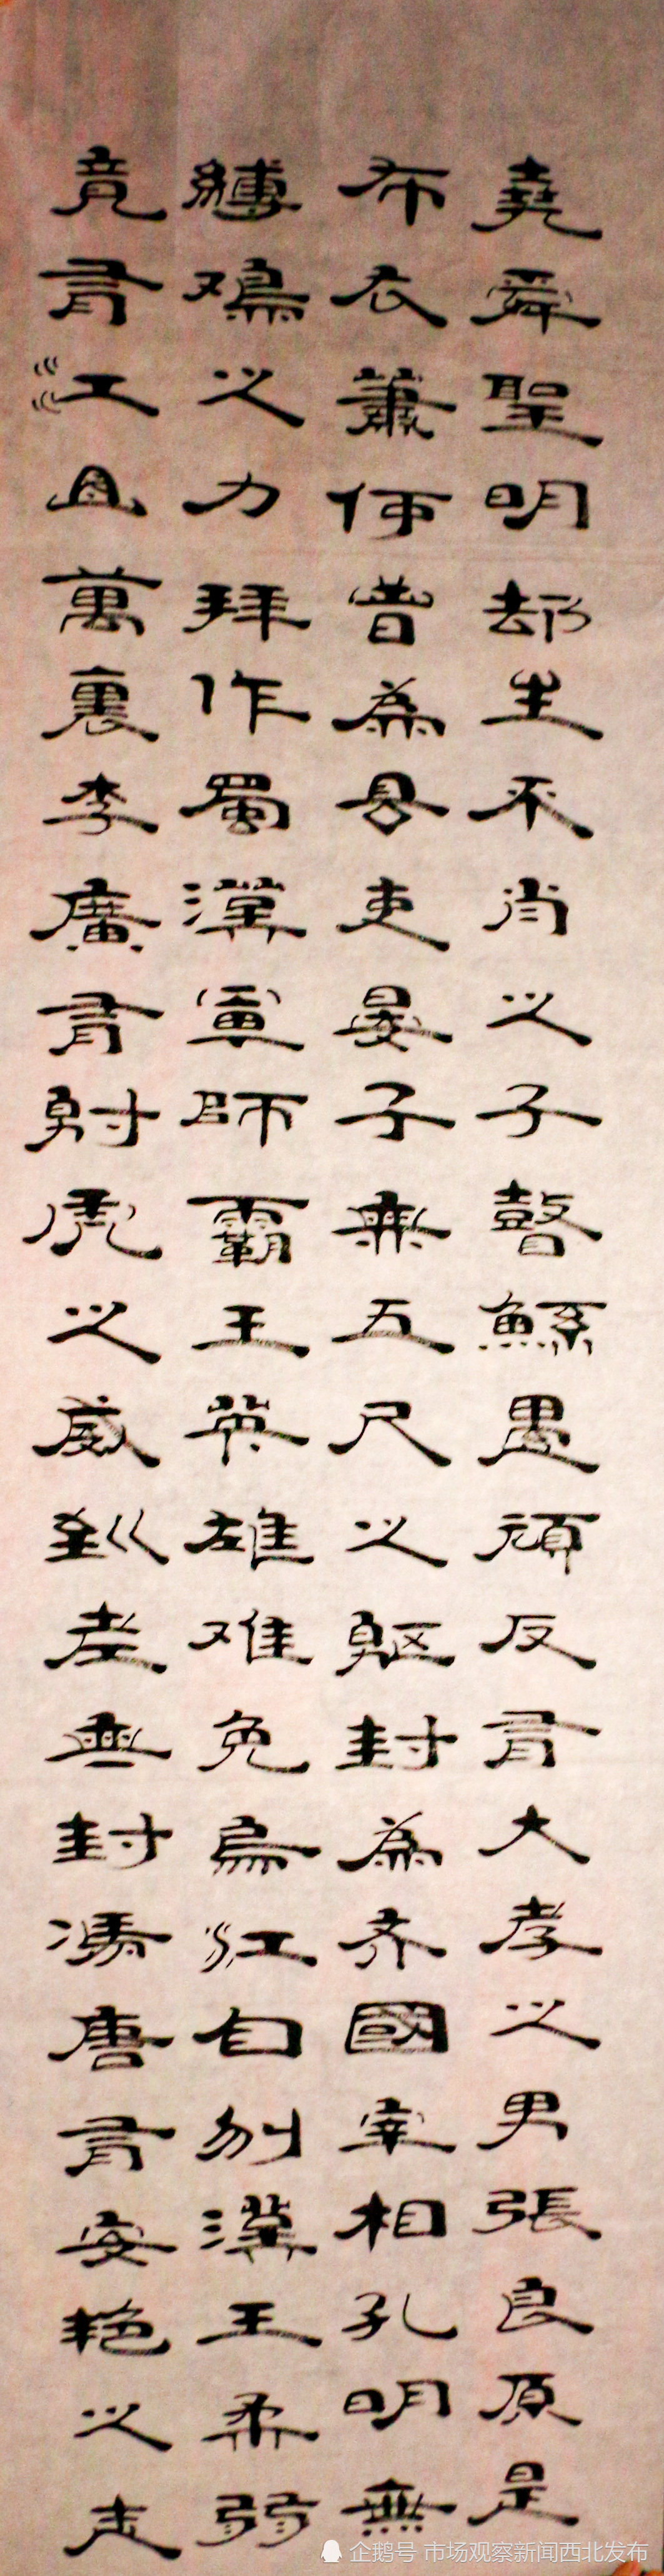 堯舜聖明却生不肖之子瞽鯀愚頑反有大孝之男張良原是
布衣蕭何昔為县吏晏子無五尺之躯封為齐國宰相孔明無
縛鳮之力拜作蜀漢軍師霸王英雄难免烏江自刎漢王柔弱
竟有江山萬裏李廣有射虎之威到老無封馮唐有安艳之
企鹅号 市场观察新闻西北发布